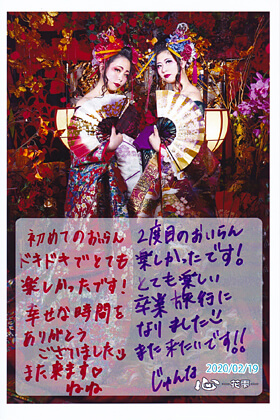 初めてのおいらん
ドキドキでとても
楽しかったです!
幸せな時間を
ありがとう
ございました
また来ます♡
ねね
2度目のおいらん
楽しかったです!
とても楽しい
卒業旅行に
なりました
また来たいです!!
じゅんな
2020/02/19
心 花雫